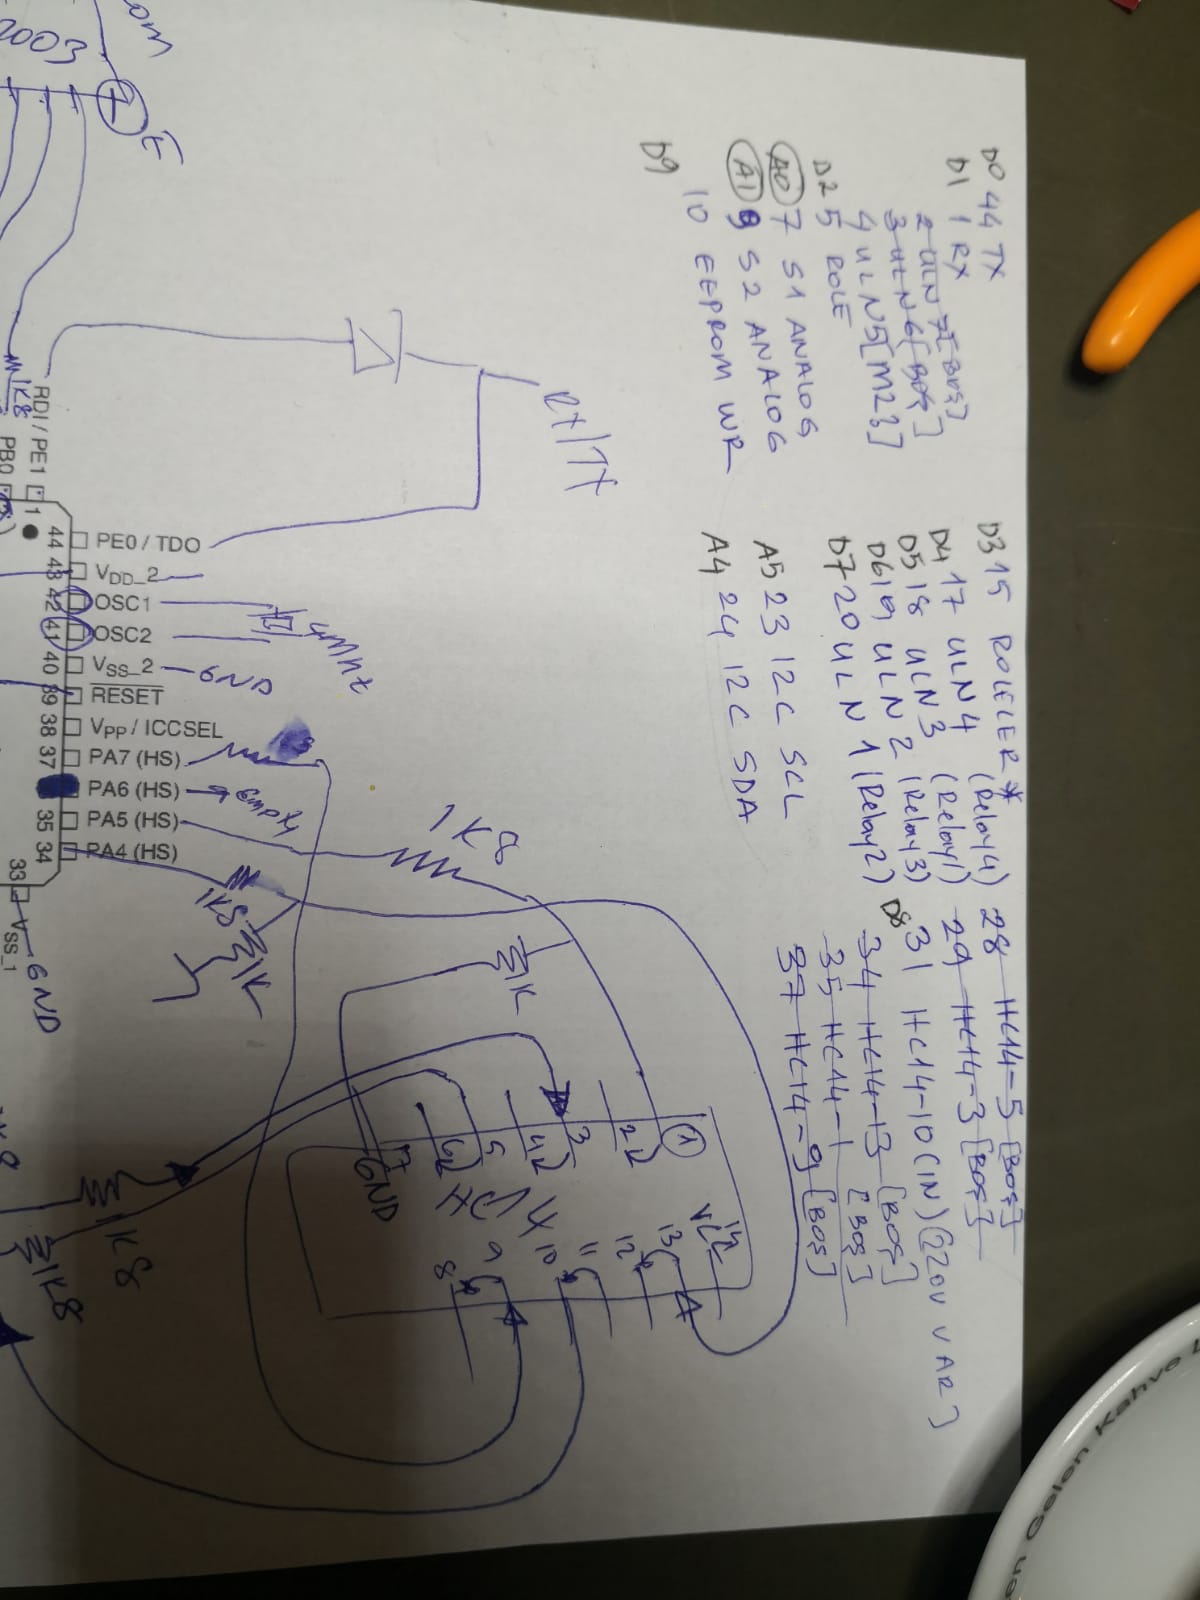 D0 44 TX
D1 1 RX
2 ULN7[BOŞ]
3 ULN6[BOŞ]
4 ULN5[M23]
D2 5 ROLE
A0 7 S1 ANALOG
A1 8 S2 ANALOG
D9 10 EEPROM WR
D3 15 ROLELER*
D4 17 ULN4 (Relay4)
D5 18 ULN3 (Relay1)
D6 19 ULN2 (Relay3)
D7 20 ULN1 (Relay2)
A5 23 I2C SCL
A4 24 I2C SDA
28 HC14-5 [BOŞ]
29 HC14-3 [BOŞ]
D8 31 HC14-10 (IN)(220V VAR)
34 HC14-13 [BOŞ]
35 HC14-1 [BOŞ]
37 HC14-9 [BOŞ]
om
2003
+
E
RX/TX
1K8
RDI / PE1
PB0
1
44 PE0 / TDO
43 VDD_2
42 OSC1
41 OSC2
4MHz
40 VSS_2 GND
39 RESET
38 VPP / ICCSEL
37 PA7 (HS)
PA6 (HS) → Empty
35 PA5 (HS)
34 PA4 (HS)
33 VSS_1 GND
1K8
1K8
1K
1K
1
2
3
4
5
6
7 GND
HC14
14 VCC
13
12
11
10
9
8
1K8
1K8
K8
en Golon Kahve